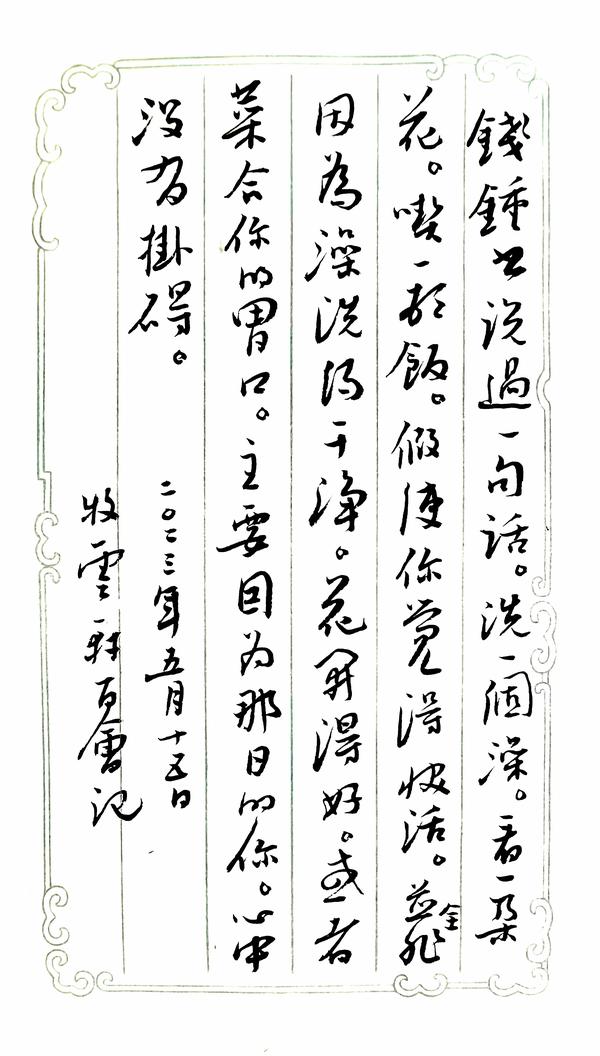 錢鍾书说過一句话。洗一個澡。看一朵
花。喫一顿飯。假使你覺得快活。並非全
因為澡洗得干净。花開得好。或者
菜合你的胃口。主要因为那日的你。心中
没有掛碍。
二〇二三年五月十五日
牧雲轩百會记